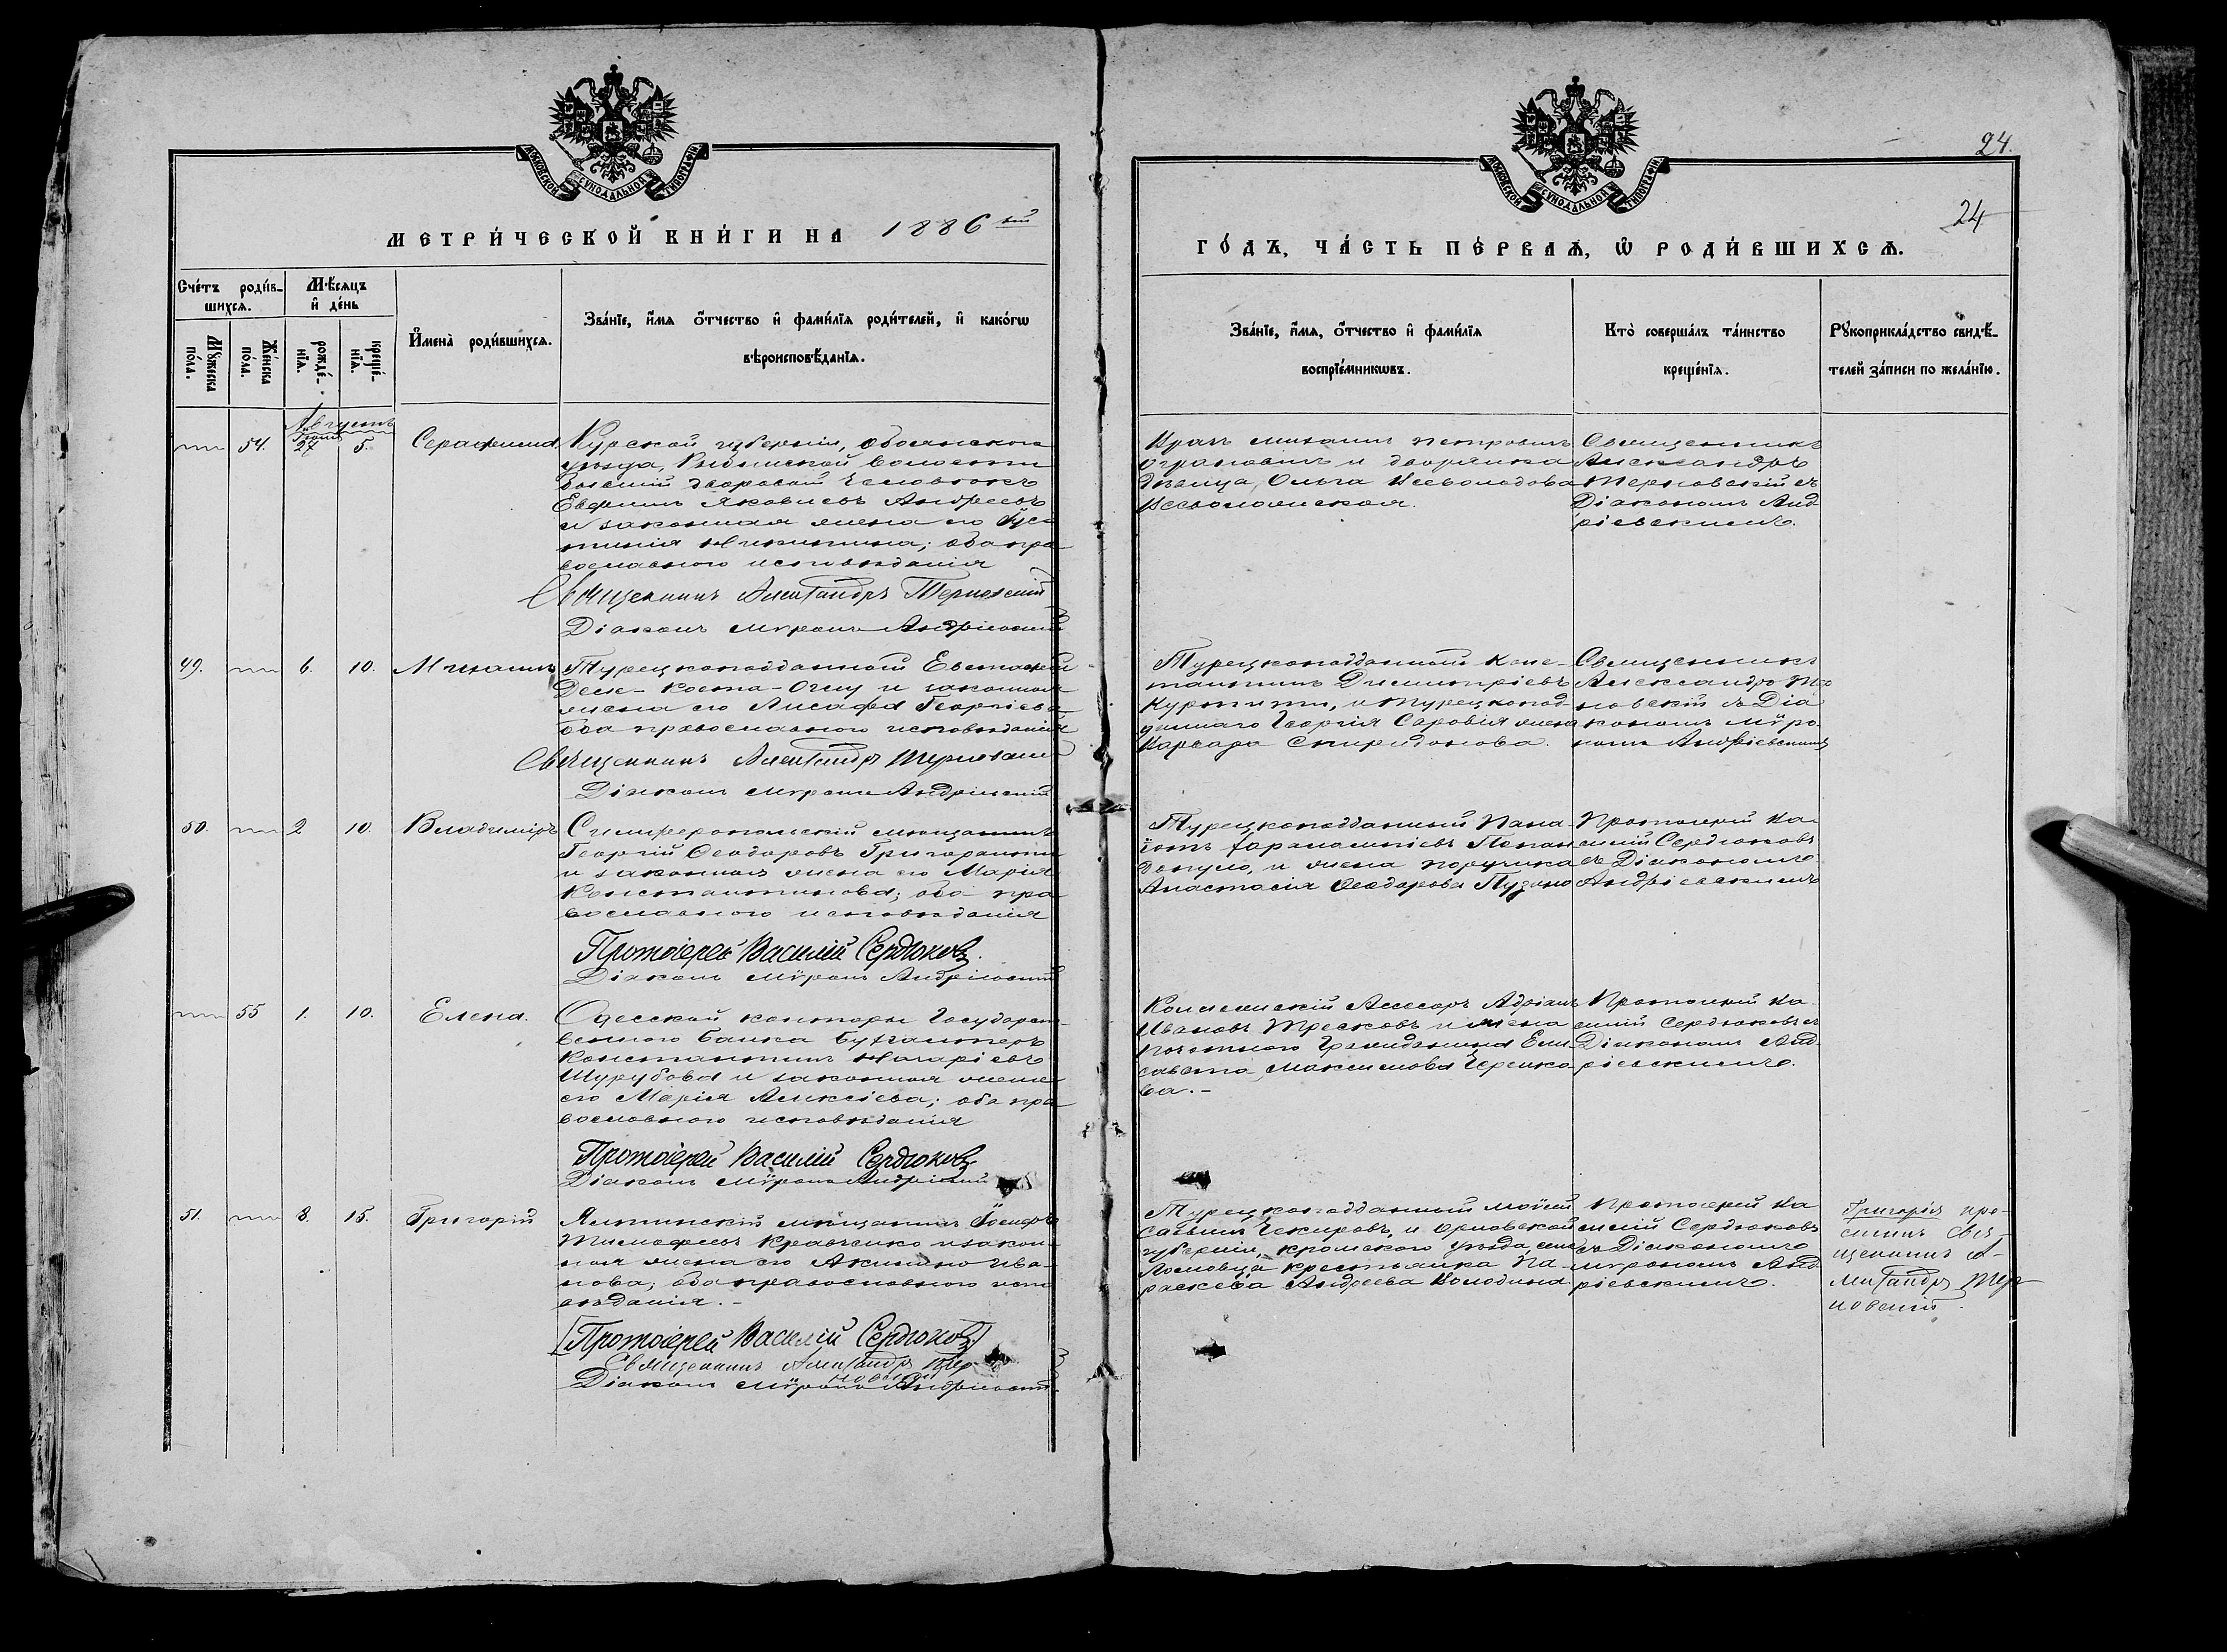 МОСКОВСКОЙ СУНОДАЛЬНОЙ ТИПОГРАФІИ
МЕТРИ́ЧЕСКОЙ КНИ́ГИ НА 1886 ый
Сче́тъ роди́в-
шихсѧ.
Мѣ́сяцъ
и҆ де́нь
Мꙋ́жеска
по́ла.
Же́нска
по́ла.
рожде́-
нїѧ.
креще́-
нїѧ.
И҆мена̀ роди́вшихсѧ.
Зва́нїе, и҆́мѧ ѻ҆́тчество и҆ фами́лїѧ роди́телей, и҆ како́гѡ
вѣроисповѣ́данїѧ.
Августъ
54. Іюля 27 5. Серафима
Курской губерніи, Обоянскаго
уѣзда, волости
бывшій дворовый человѣкъ
Евфимъ Яковлевъ Андреевъ
и законная жена его Іус-
тинія Никитина; оба пра
вославнаго исповѣданія
Священникъ Александръ Терновскій
Діаконъ Мѵронъ Андріевскій
49. 6. 10. Михаилъ
Турецкоподданный Евстафій
Деле-Коста-Оглу и законная
жена его Лисафа Георгіева
оба православнаго исповѣданія
Священникъ Александръ Терновскій
Діаконъ Мѵронъ Андріевскій
50. 2 10. Владиміръ
Симферопольскій мѣщанинъ
Георгій Ѳеодоровъ
и законная жена его Марія
Константинова; оба пра
вославнаго исповѣданія
Протоіерей Василій Сердюковъ.
Діаконъ Мѵронъ Андріевскій
55 1. 10. Елена.
Одесской конторы Государст-
веннаго банка бухгалтеръ
Константинъ
Шурубова и законная жена
его Марія Алексіева; оба пра
вославнаго исповѣданія
Протоіерей Василій Сердюковъ
Діаконъ Мѵронъ Андріевскій
51. 8. 15. Григорій
Ялтинскій мѣщанинъ Іосифъ
Тимофеевъ Кравченко и закон-
ная жена его Акилина Ива-
нова; оба православнаго испо
вѣданія.-
[Протоіерей Василій Сердюковъ.]
Священникъ Александръ Тер
новскій
Діаконъ Мѵронъ Андріевскій
24.
24
МОСКОВСКОЙ СУНОДАЛЬНОЙ ТИПОГРАФІИ
ГО́ДЪ, ЧА́СТЬ ПЕ́РВАѦ, Ѡ҆ РОДИ́ВШИХСѦ.
Зва́нїе, и҆́мѧ, ѻ҆́тчество и҆ фами́лїѧ
воспрїе́мникѡвъ.
Кто̀ соверша́лъ та́инство
креще́нїѧ.
Рꙋкоприкла́дство свидѣ́-
телей за́писи по жела́нїю.
Врачъ Михаилъ Петровичъ
и дворянка
дѣвица, Ольга Всеволодова
Всеволожская.
Священникъ
Александръ
Терновскій съ
Діакономъ Анд
ріевскимъ.
Турецкоподданный Конс-
тантинъ Димитріевъ
Куртити, и Турецкопод
даннаго Георгія жена
Варвара Спиридонова.
Священникъ
Александръ Те
новскій съ Діа
кономъ Мѵро
номъ Андріевскимъ
Турецкоподданный Пана-
іотъ Папан
допуло, и жена поручика
Анастасія Ѳеодорова
Протоіерей Ва-
силій Сердюковъ
съ Діакономъ
Андріевскимъ
Коллежскій Ассесоръ Адріанъ
Ивановъ Тресковъ и жена
почетнаго Гражданина Ели-
савета Максимова Черенко
ва.-
Протоіерей Ва-
силій Сердюковъ съ
Діакономъ Анд
ріевскимъ.
Турецкоподданный Моисей
Чекировъ, и Орловской
губерніи, Кромскаго уѣзда, села
крестьянка Па-
раскева Андреева Володина
Протоіерей Ва
силій Сердюковъ
съ Діакономъ
Мѵрономъ Анд
ріевскимъ.
Григорія кре-
стилъ Свя-
щенникъ А-
лександръ Тер
новскій.